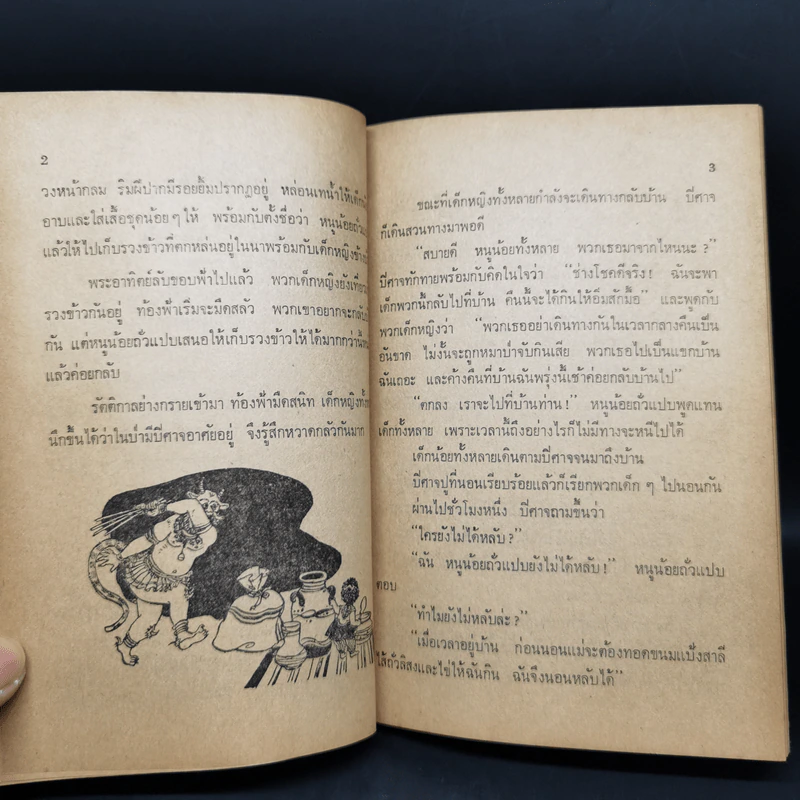 2
วงหน้ากลม ริมฝีปากมีรอยยิ้มปรากฏอยู่ หล่อนเทน้ำให้เด็ก
อาบและใส่เสื้อชุดน้อยๆให้ พร้อมกับตั้งชื่อว่า หนูน้อยถั่ว
แล้วให้ไปเก็บรวงข้าวที่ตกหล่นอยู่ในนาพร้อมกับเด็กหญิง
พระอาทิตย์ลับขอบฟ้าไปแล้ว พวกเด็กหญิงยังเที่ยว
รวงข้าวกันอยู่ ท้องฟ้าเริ่มจะมืดสลัว พวกเขาอยากจะกลับ
กัน แต่หนูน้อยถั่วแปบเสนอให้เก็บรวงข้าวให้ได้มากกว่านี้
แล้วค่อยกลับ
รัตติกาลย่างกรายเข้ามา ท้องฟ้ามืดสนิท เด็กหญิงทั้ง
นึกขึ้นได้ว่าในป่ามีปีศาจอาศัยอยู่ จึงรู้สึกหวาดกลัวกันมาก
3
ขณะที่เด็กหญิงทั้งหลายกำลังจะเดินทางกลับบ้าน ปีศาจ
ก็เดินสวนทางมาพอดี
“สบายดี หนูน้อยทั้งหลาย พวกเธอมาจากไหนนะ?”
ปีศาจทักทายพร้อมกับคิดในใจว่า “ช่างโชคดีจริง! ฉันจะพา
เด็กพวกนี้กลับไปที่บ้าน คืนนี้จะได้กินให้อิ่มสักมื้อ” และพูดกับ
พวกเด็กหญิงว่า “พวกเธออย่าเดินทางกันในเวลากลางคืนเป็น
อันขาด ไม่งั้นจะถูกหมาป่าจับกินเสีย พวกเธอไปเป็นแขกบ้าน
ฉันเถอะ และค้างคืนที่บ้านฉันพรุ่งนี้เช้าค่อยกลับบ้านไป”
“ตกลง เราจะไปที่บ้านท่าน!” หนูน้อยถั่วแปบพูดแทน
เด็กทั้งหลาย เพราะเวลานี้ถึงอย่างไรก็ไม่มีทางจะหนีไปได้
เด็กน้อยทั้งหลายเดินตามปีศาจจนมาถึงบ้าน
ปีศาจปูที่นอนเรียบร้อยแล้วก็เรียกพวกเด็ก ๆ ไปนอนกัน
ผ่านไปชั่วโมงหนึ่ง ปีศาจถามขึ้นว่า
“ใครยังไม่ได้หลับ?”
“ฉัน หนูน้อยถั่วแปบยังไม่ได้หลับ!” หนูน้อยถั่วแปบ
ตอบ
“ทำไมยังไม่หลับล่ะ?”
“เมื่อเวลาอยู่บ้าน ก่อนนอนแม่จะต้องทอดขนมแป้งสาลี
ไส้ถั่วลิสงและไข่ให้ฉันกิน ฉันจึงนอนหลับได้”